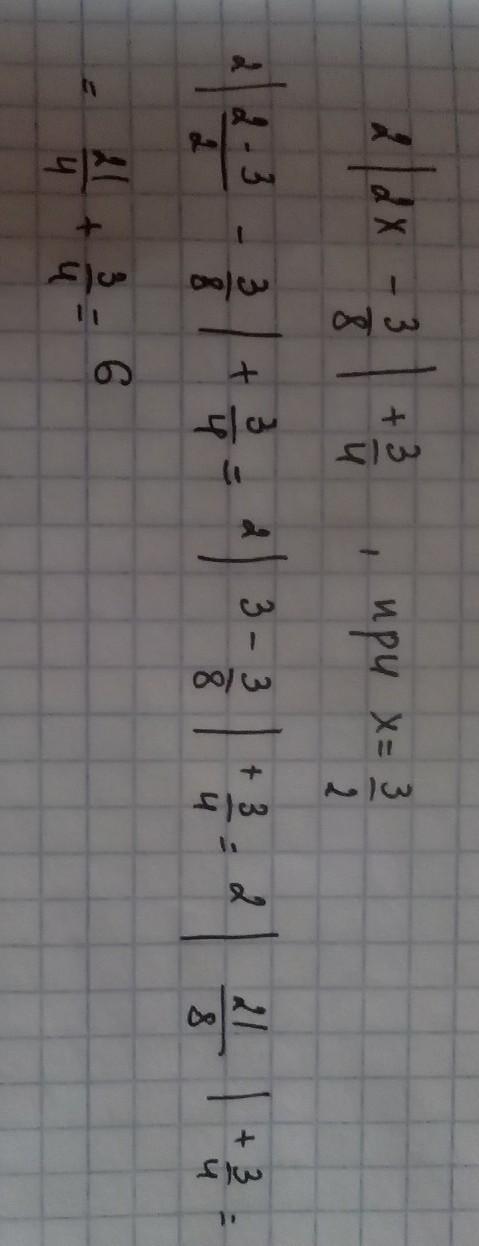 2|2x - 3/8| + 3/4, при x = 3/2
2|2·3/2 - 3/8| + 3/4 = 2|3 - 3/8| + 3/4 = 2|21/8| + 3/4 =
= 21/4 + 3/4 = 6